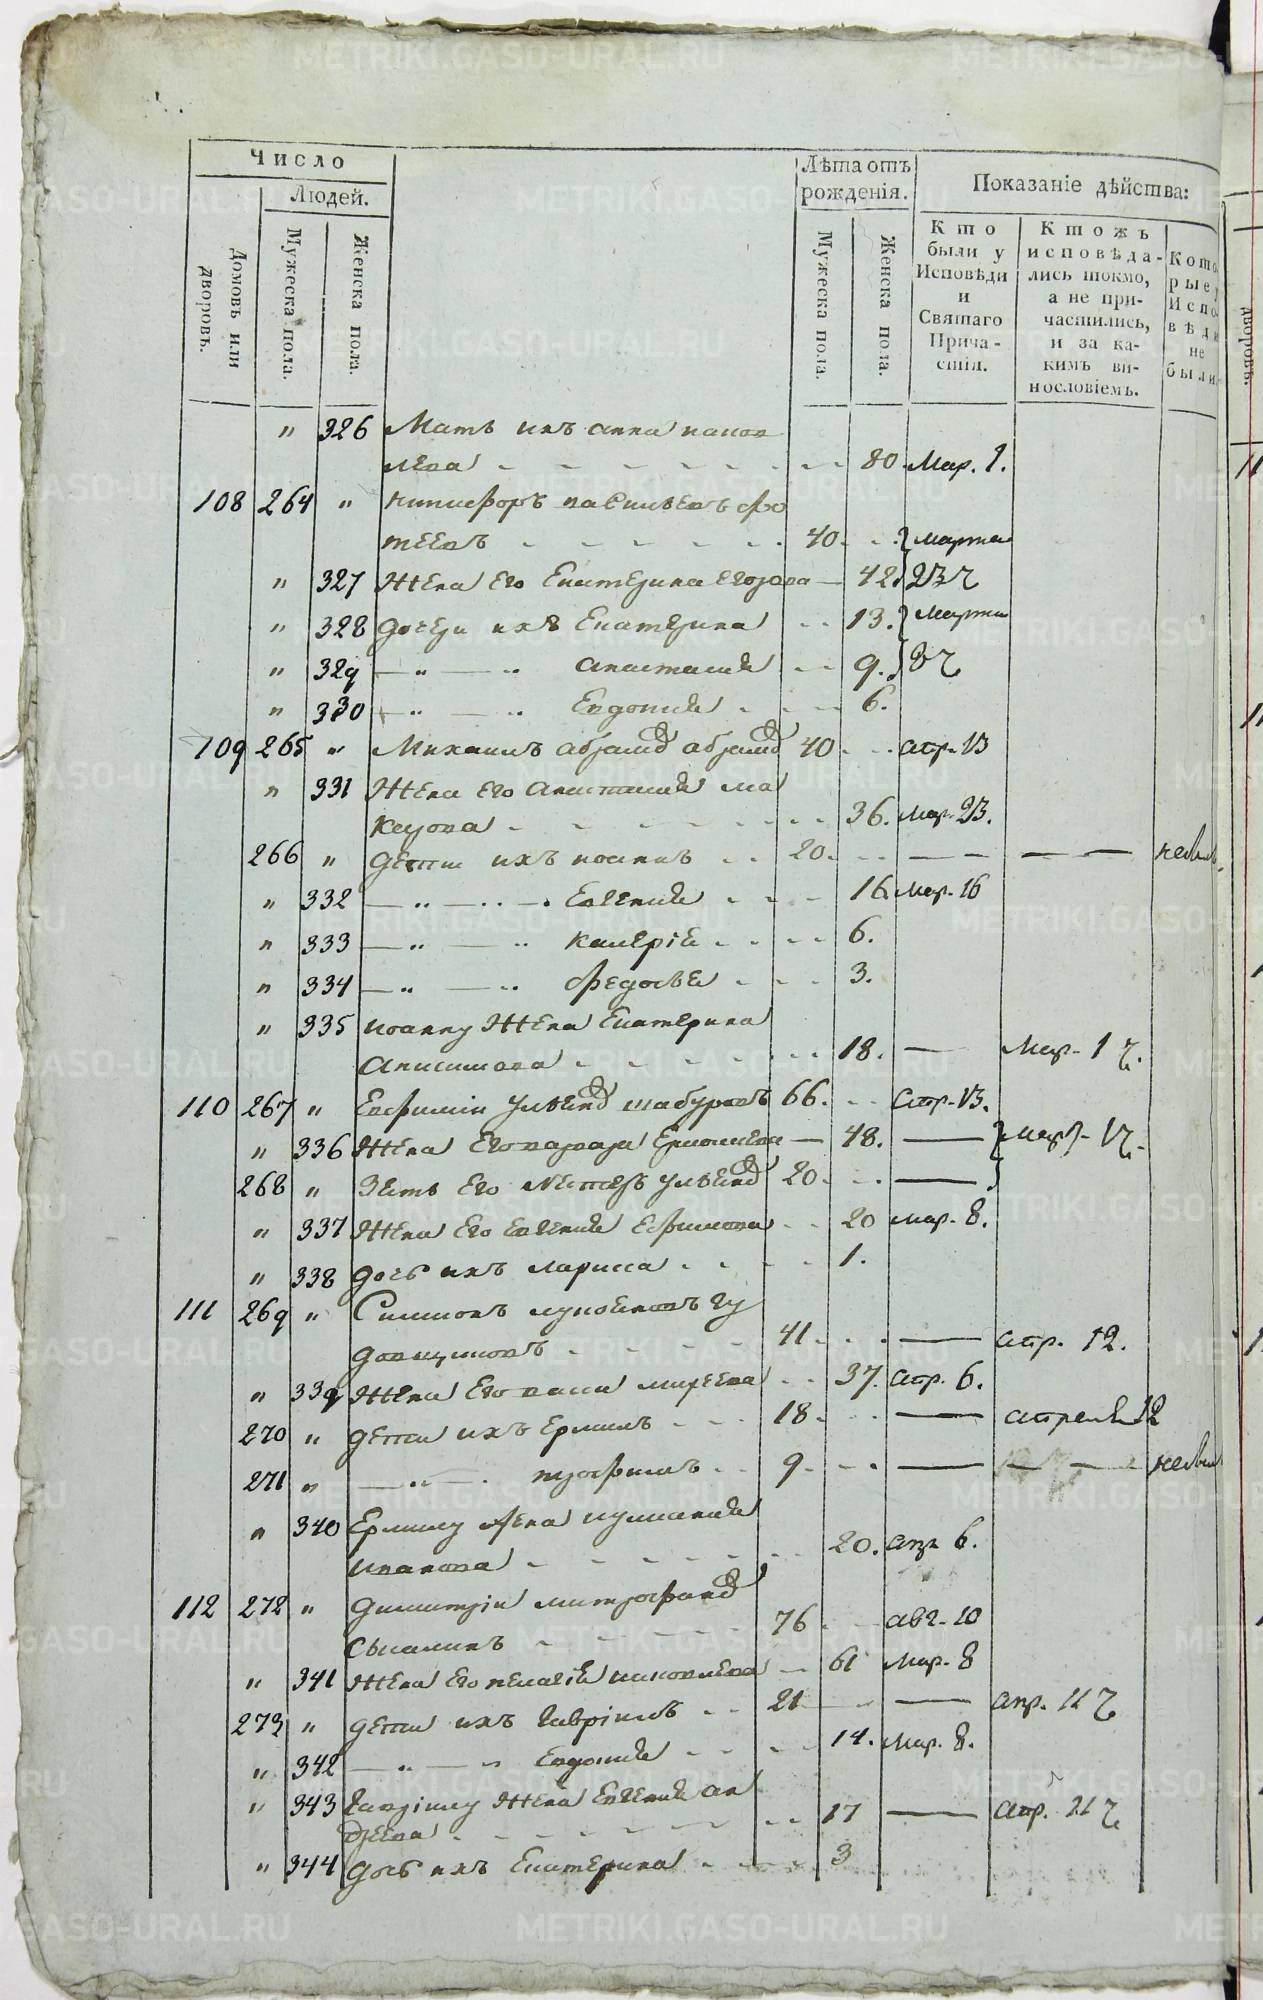 Число
Людей.
Домовъ или дворовъ.
Мужеска пола.
Женска пола.
Лѣта отъ рожденія.
Мужеска пола.
Женска пола.
Показаніе дѣйства:
Кто были у Исповѣди и Святаго Причастія.
Ктожъ исповѣдались токмо, а не причастились, и за какимъ винословіемъ.
Которые у Исповѣди не были
" 326 Мать ихъ анна иаков
лева 80 Мар. 1.
108 264 " никифоръ васильевъ фо
теевъ 40 марта
" 327 Жена Его Екатерина егорова 42 23 ч
" 328 дочери ихъ Екатерина 13. Марта
" 329 — " — " анастасия 9. 3 ч
" 330 — " — " Евдокия 6.
109 265 " Михаилъ абрамов абрамов 40 апр. 13
" 331 Жена его Анастасия ма
карова 36. Мар. 23.
266 " дети ихъ иоаннъ 20. — — — — небыл.
" 332 — " — " Евгения 16. Мар. 16
" 333 — " — " 6.
" 334 — " — " федосья 3.
" 335 иоанну Жена Екатерина
Анисимова 18. — Мар. 1 ч.
110 267 " Евфимий шабуровъ 66. апр. 13.
" 336 Жена Его варвара 48. — Мар. 1 ч.
268 " Зять Его 20 —
" 337 Жена Его Евгения Ефимова 20 мар. 8.
" 338 дочь ихъ лариса 1.
111 269 " Симионъ гу
довщиковъ 41 — апр. 12.
" 339 Жена Его 37. апр. 6.
270 " дети ихъ Ермилъ 18 — апреля 12
271 " — " — трофимъ 9. — — — небыл
" 340 Ермилу Жена иулиания
иванова 20. апр 6.
112 272 " димитрий митрофанов
76 авг. 10
" 341 Жена Его пелагия иаковлева 61 Мар. 8
273 " дети ихъ Гаврiилъ 21 — апр. 11 ч
" 342 — " — " Евдокия 14. Мар. 8.
" 343 Гаврiилу Жена Евгения ан
дреева 17 — апр. 11 ч
" 344 дочь ихъ Екатерина 3
дворовъ.
METRIKI.GASO-URAL.RU